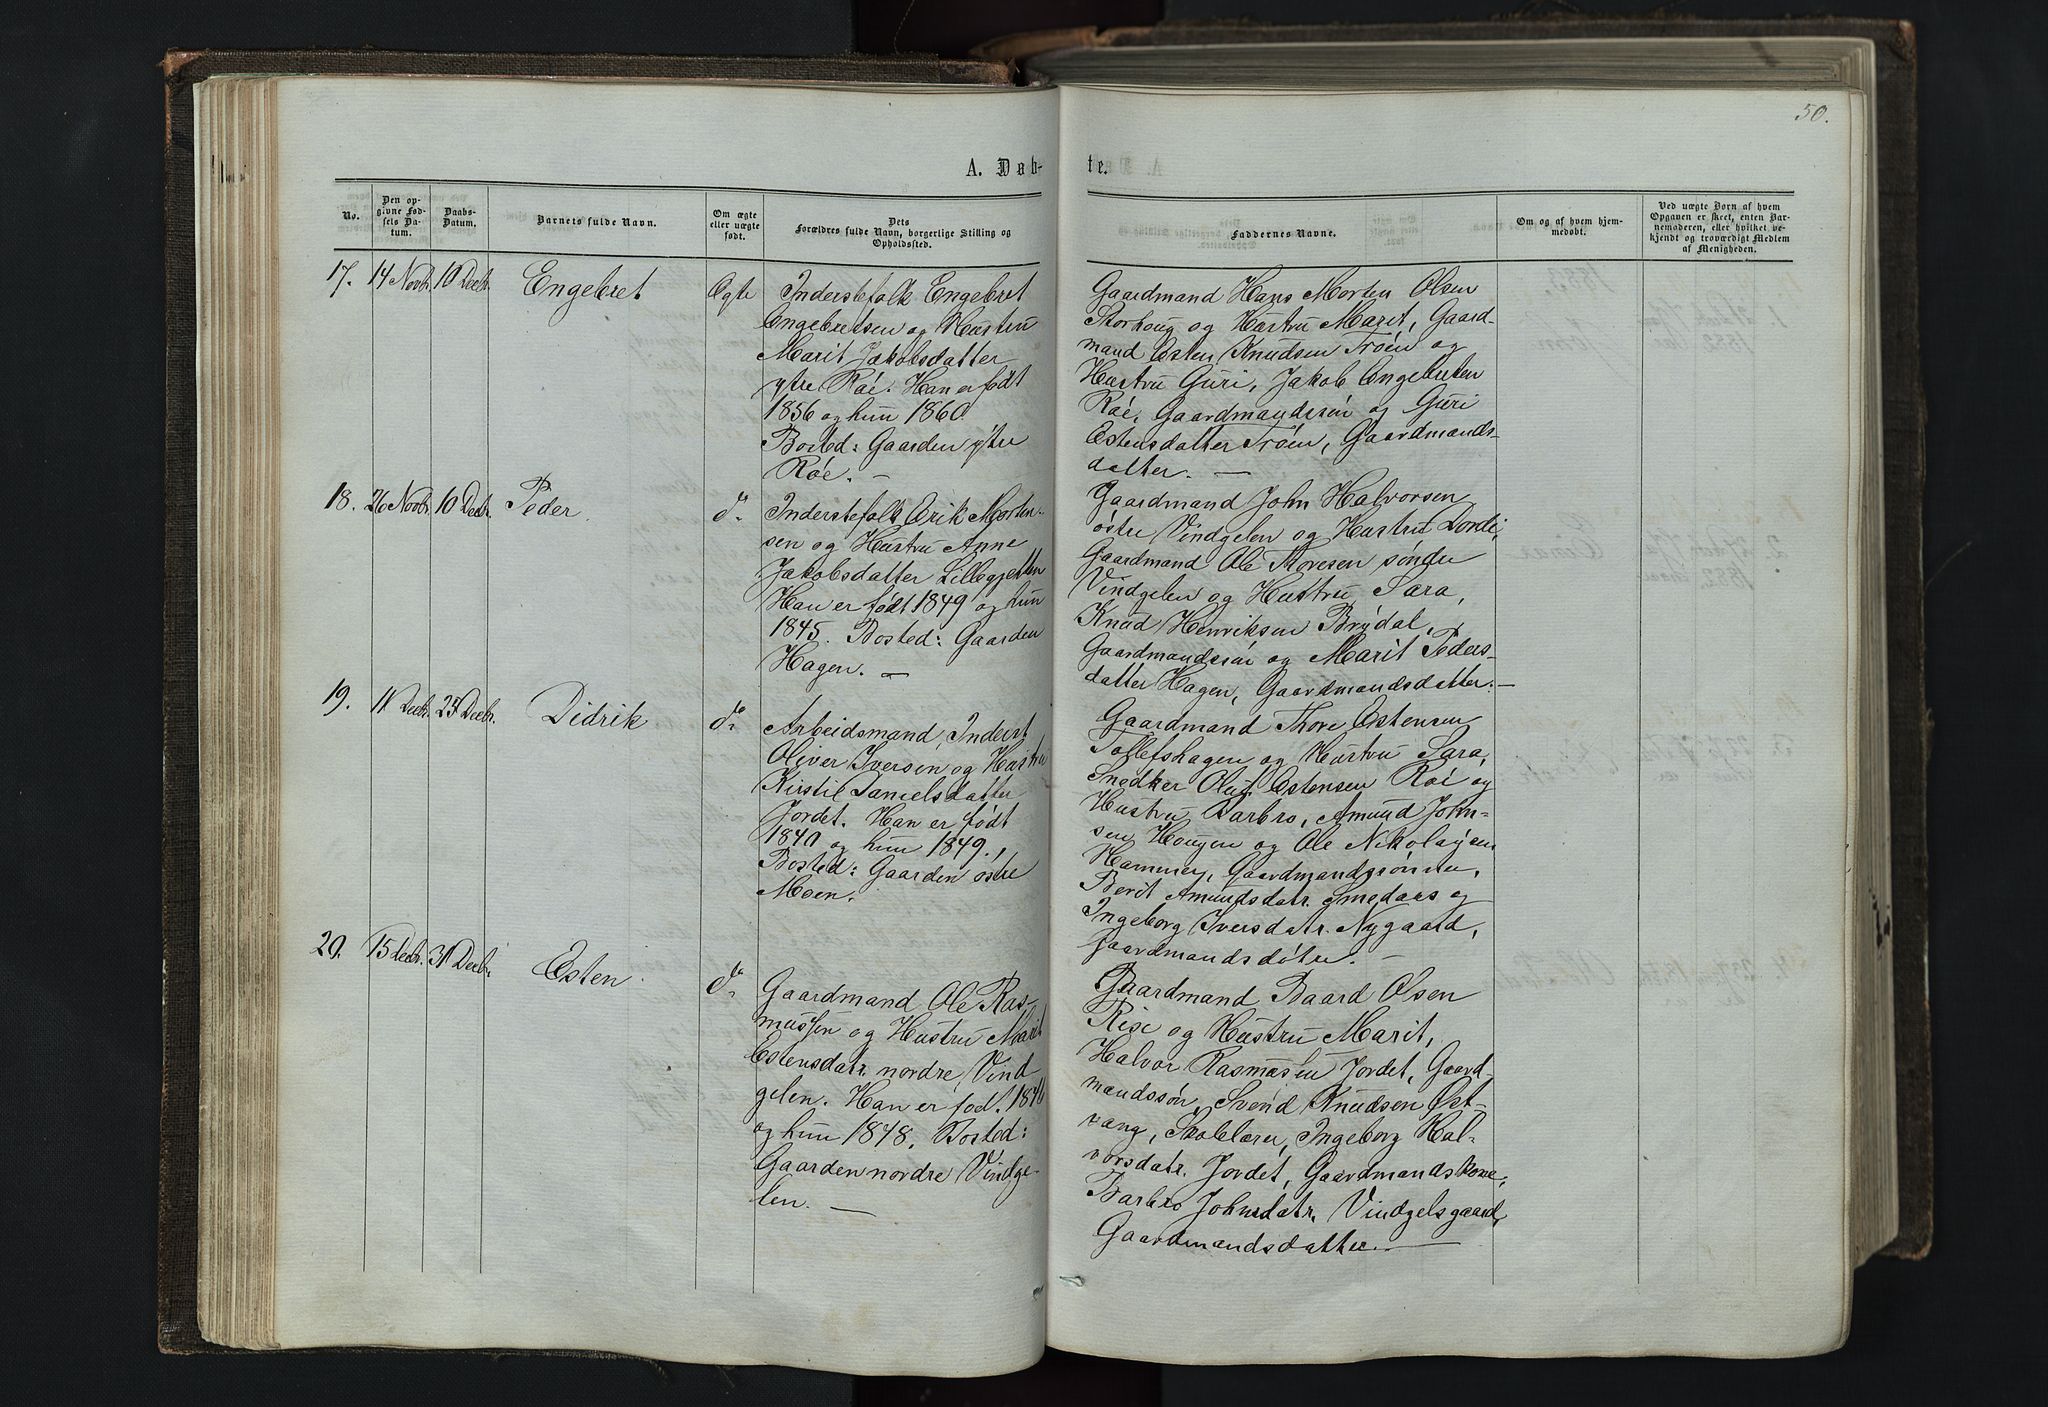 50.
A. Døb-
te.
No.
Den op-
givne Fød-
sels Da-
tum.
Daabs-
Datum.
Barnets fulde Navn.
Om ægte
eller uægte
født.
Dets
Forældres fulde Navn, borgerlige Stilling og
Opholdssted.
Faddernes Navne.
Om og af hvem hjem-
medøbt.
Ved uægte Børn af hvem
Opgaven er skeet, enten Bar-
nemoderen, eller hvilket ve-
kjendt og troværdigt Medlem
af Menigheden.
17. 14 Novbr. 10 Decbr. Engebret Ægte
Inderstefolk Engebret
Engebretsen og Hustru
Marit Jakobsdatter
ytre Røe. Han er født
1856 og hun 1860
Bosted: Gaarden ytre
Røe. —
Gaardmand Hans Morten Olsen
Storhoug og Hustru Marit, Gaard-
mand Esten Knudsen Trøen og
Hustru Guri, Jakob Engebretsen
Røe, Gaardmandssøn og Guri
Estensdatter Trøen, Gaardmands-
datter. —
18. 26 Novbr. 10 Decbr. Peder. do.
Inderstefolk Erik Morten-
sen og Hustru Anne
Jakobsdatter Lillegjetten
Han er født 1849 og hun
1845. Bosted: Gaarden
Hagen. —
Gaardmand John Halvorsen
østre Vindgelen og Hustru Dordi,
Gaardmand Ole Thoresen søndre
Vindgelen og Hustru Sara,
Knud Henriksen Brydal,
Gaardmandssøn og Marit Peders-
datter Hagen, Gaardmandsdatter. —
19. 11 Decbr. 25 Decbr. Didrik do.
Arbeidsmand, Inderst
Oliver Iversen og Hustru
Kirstil Danielsdatter
Jordet. Han er født
1840 og hun 1849.,
Bosted: Gaarden østre
Moen.
Gaardmand Thore Estensen
Tollefshagen og Hustru Sara,
Snedker Oluf Estensen Røe og
Hustru Barbro, Amund John-
sen Hougen og Ole Nikolaysen
Hammer, Gaardmandssønner,
Berit Amundsdatr. Smedaas og
Ingeborg Iversdatr. Nygaard,
Gaardmandsdøtre. —
20. 15 Decbr. 31 Decbr. Esten. do.
Gaardmand Ole Ras-
mussen og Hustru Marit
Estensdatr. nordre Vind
gelen. Han er født 1846
og hun 1848. Bosted:
Gaarden nordre Vindge-
len. —
Gaardmand Baard Olsen
Rise og Hustru Marit,
Halvor Rasmussen Jordet, Gaard-
mandssøn, Svend Knudsen Øst-
vang, Skolelærer, Ingeborg Hal-
vorsdatr. Jordet, Gaardmandskone,
Barbro Johnsdatr. Vindgelsgaard,
Gaardmandsdatter. —